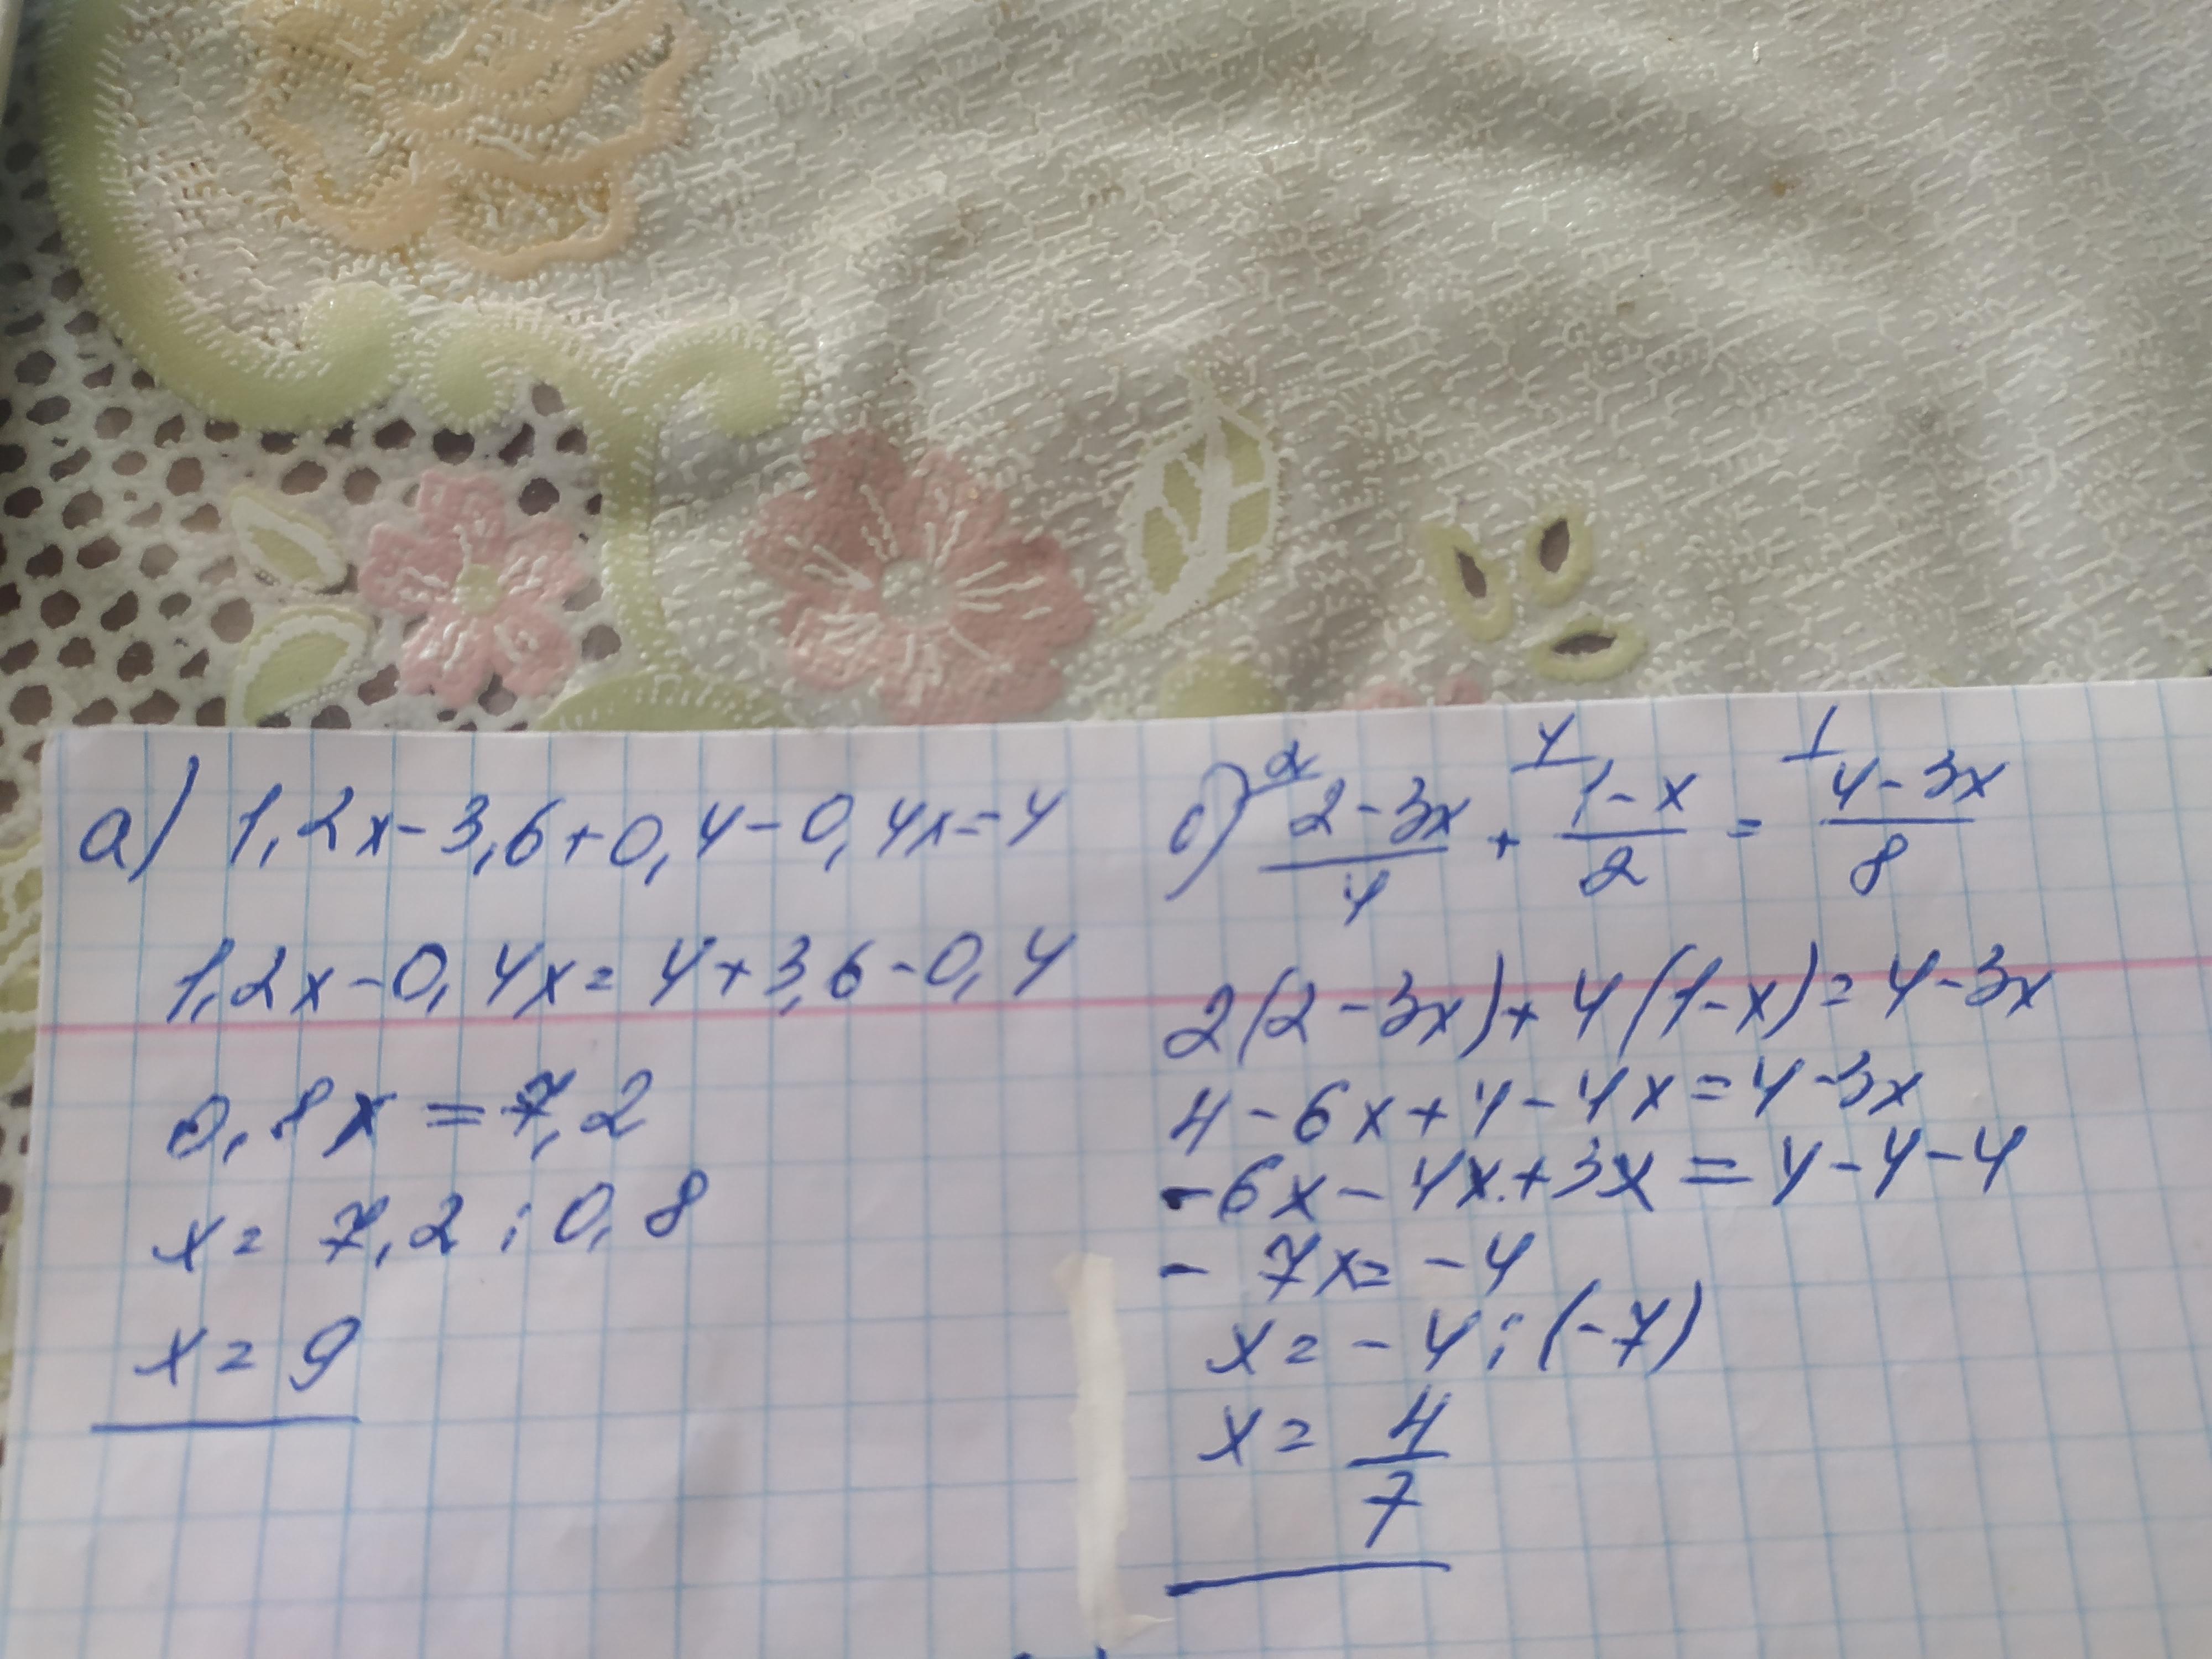 а) 1,2x-3,6+0,4-0,4x=4
1,2x-0,4x=4+3,6-0,4
0,8x=7,2
x=7,2:0,8
x=9
б) 2 4 1
2-3x/4 + 1-x/2 = 4-3x/8
2(2-3x)+4(1-x)=4-3x
4-6x+4-4x=4-3x
-6x-4x+3x=4-4-4
-7x=-4
x=-4:(-7)
x=4/7